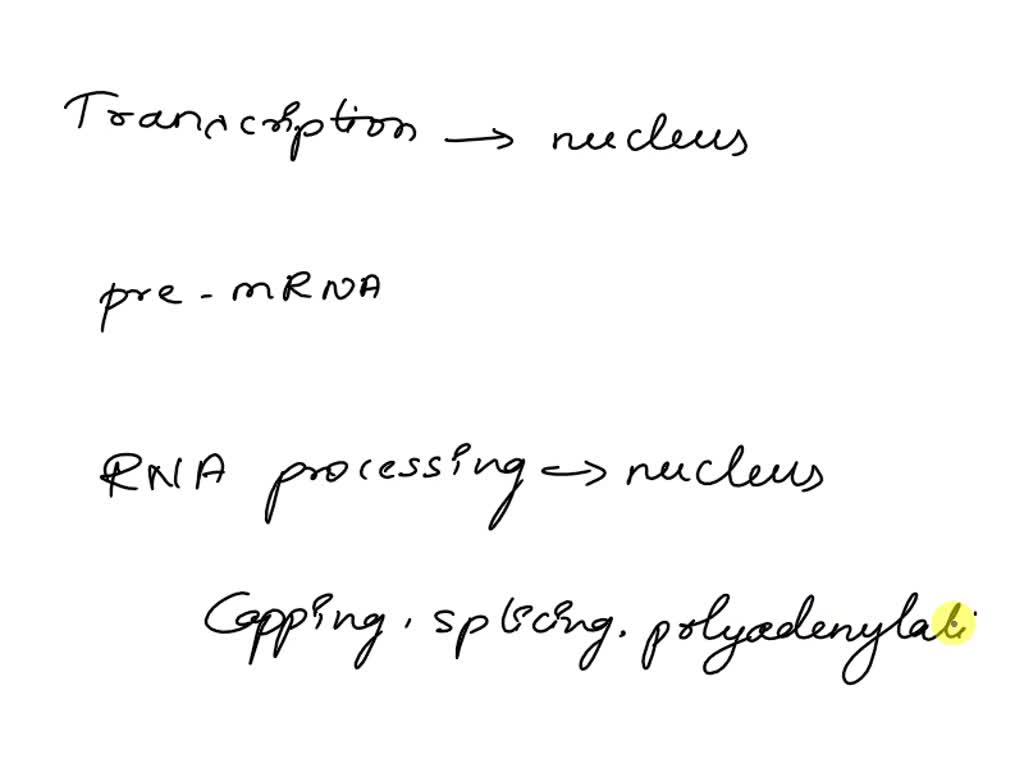 Transcription → nucleus
pre-mRNA
RNA processing → nucleus
Capping, splicing, polyadenylati